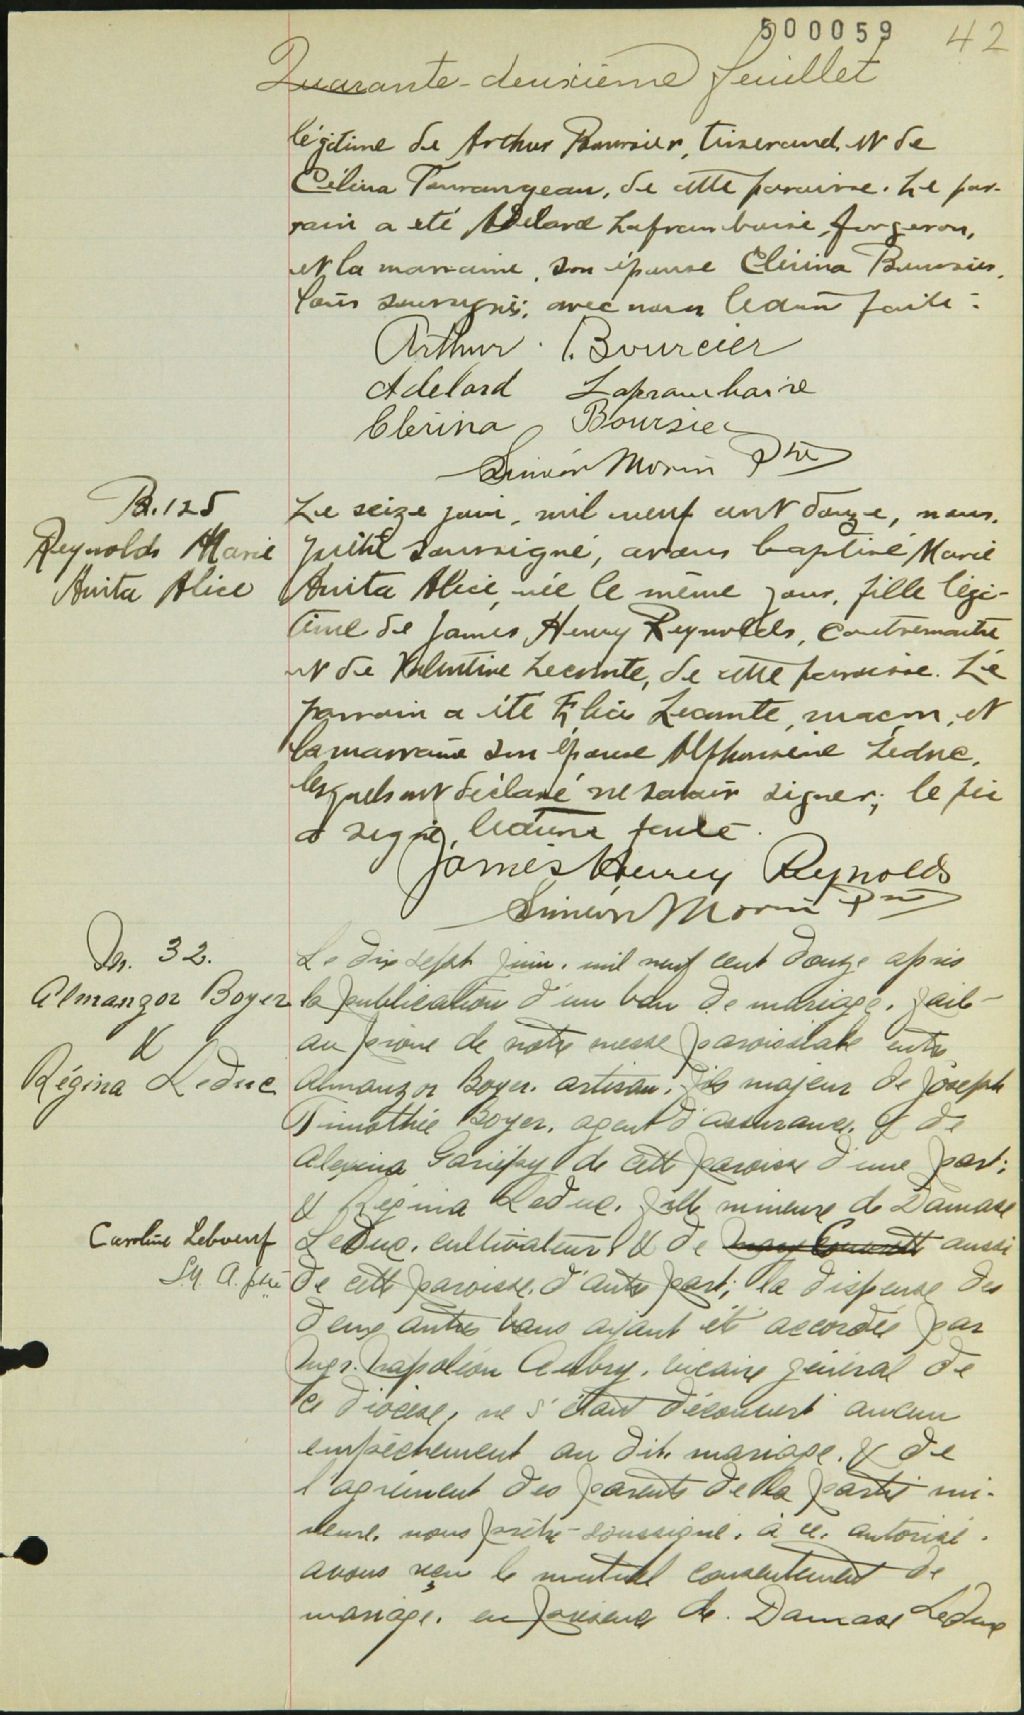 500059 42
Quarante-deuxième feuillet
légitime de Arthur Boursier, tisserand, et de
Célina Tourangeau, de cette paroisse. Le par-
rain a été Adélard Laframboise, forgeron,
et la marraine, son épouse Clérina Boursier,
avec nous lecture faite.
Arthur Bourcier
Adelard Laframbaise
Clérina Boursier
Siméon Morin Ptre
B. 125
Reynolds Marie
Anita Alice
Le seize juin, mil neuf cent douze, nous,
prêtre soussigné, avons baptisé Marie
Anita Alice, née le même jour, fille légi-
time de James Henry Reynolds, contremaître
et de Valentine Lecomte, de cette paroisse. Le
parrain a été Félix Lecomte, maçon, et
la marraine son épouse Alphonsine Leduc,
lesquels ont déclaré ne savoir signer; le père
a signé, lecture faite.
James Henry Reynolds
Siméon Morin Ptre
M. 32.
Almanzor Boyer
&
Régina Leduc
Le dix sept juin, mil neuf cent douze après
la publication d'un ban de mariage, fait
au prône de notre messe paroissiale entre
Almanzor Boyer, artisan, fils majeur de Joseph
Timothée Boyer, agent d'assurance, & de
Alexina Gariépy de cette paroisse d'une part;
& Régina Leduc, fille mineure de Damase
Leduc, cultivateur, & de aussi
Caroline Leboeuf
de cette paroisse, d'autre part; la dispense des
deux autres bans ayant été accordée par
Mgr. Napoléon Aubry, vicaire général de
ce diocèse, ne s'étant découvert aucun
empêchement au dit mariage, & de
l'agrément des parents de la partie mi-
neure, nous prêtre soussigné, à ce, autorisé,
avons reçu le mutuel consentement de
mariage, en présence de Damase Leduc